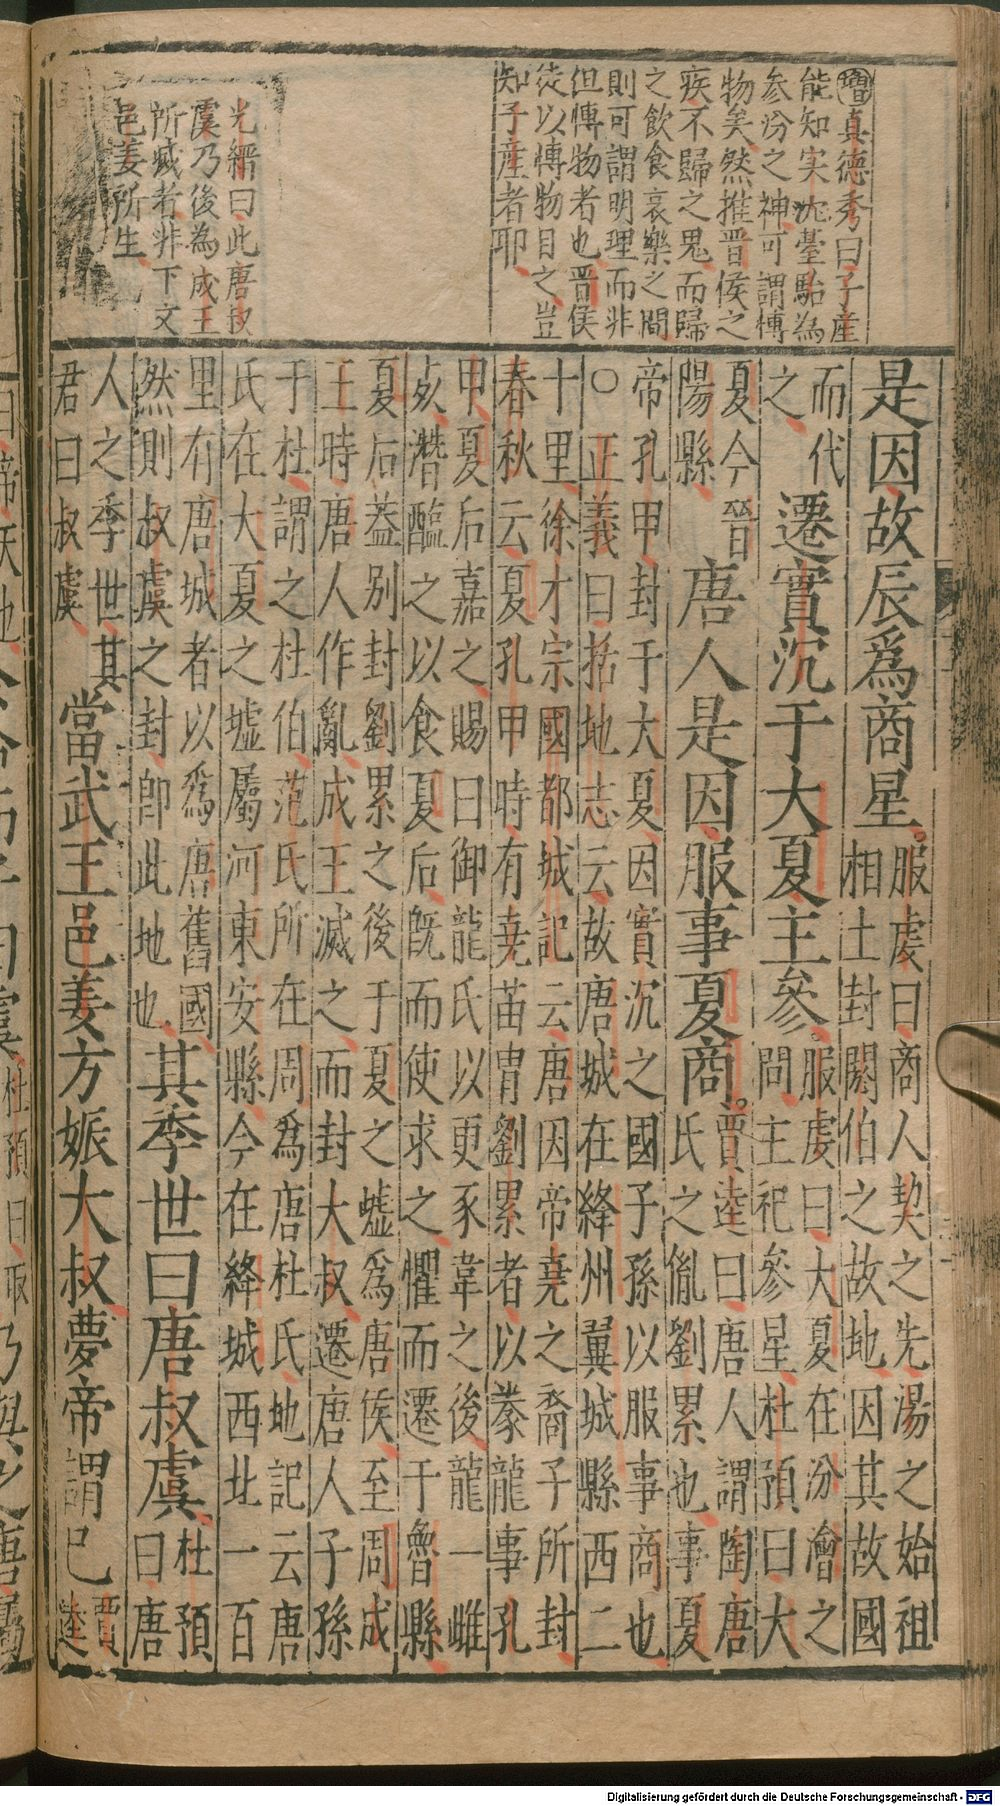 增真德秀曰子産
能知実沈臺駘為
参汾之神可謂博
物矣然推晋侯之
疾不歸之鬼而歸
之飲食哀樂之間
則可謂明理而非
但博物者也晋侯
徒以博物目之豈
知子産者耶
光縉曰此唐叔
虞乃後為成王
所滅者非下文
邑姜所生
是因故辰爲商星。服虔曰商人契之先湯之始祖
相土封閼伯之故地因其故國
而代
之遷實沉于大夏主參。服虔曰大夏在汾澮之
問主祀參星杜預曰大
夏今晉
陽縣唐人是因服事夏商。賈逵曰唐人謂陶唐
氏之胤劉累也事夏
帝孔甲封于大夏因實沉之國子孫以服事商也
○正義曰括地志云故唐城在絳州翼城縣西二
十里徐才宗國都城記云唐因帝堯之裔子所封
春秋云夏孔甲時有堯苗胄劉累者以豢龍事孔
甲夏后嘉之賜曰御龍氏以更豕韋之後龍一雌
死潛醢之以食夏后既而使求之懼而遷于魯縣
夏后葢別封劉累之後于夏之墟爲唐侯至周成
王時唐人作亂成王滅之而封大叔遷唐人子孫
于杜謂之杜伯范氏所在周爲唐杜氏地記云唐
氏在大夏之墟屬河東安縣今在絳城西北一百
里有唐城者以爲唐舊國
然則叔虞之封卽此地也其季世曰唐叔虞杜預
曰唐
人之季世其
君曰叔虞當武王邑姜方娠大叔夢帝謂巳賈
逵
Digitalisierung gefördert durch die Deutsche Forschungsgemeinschaft - DFG